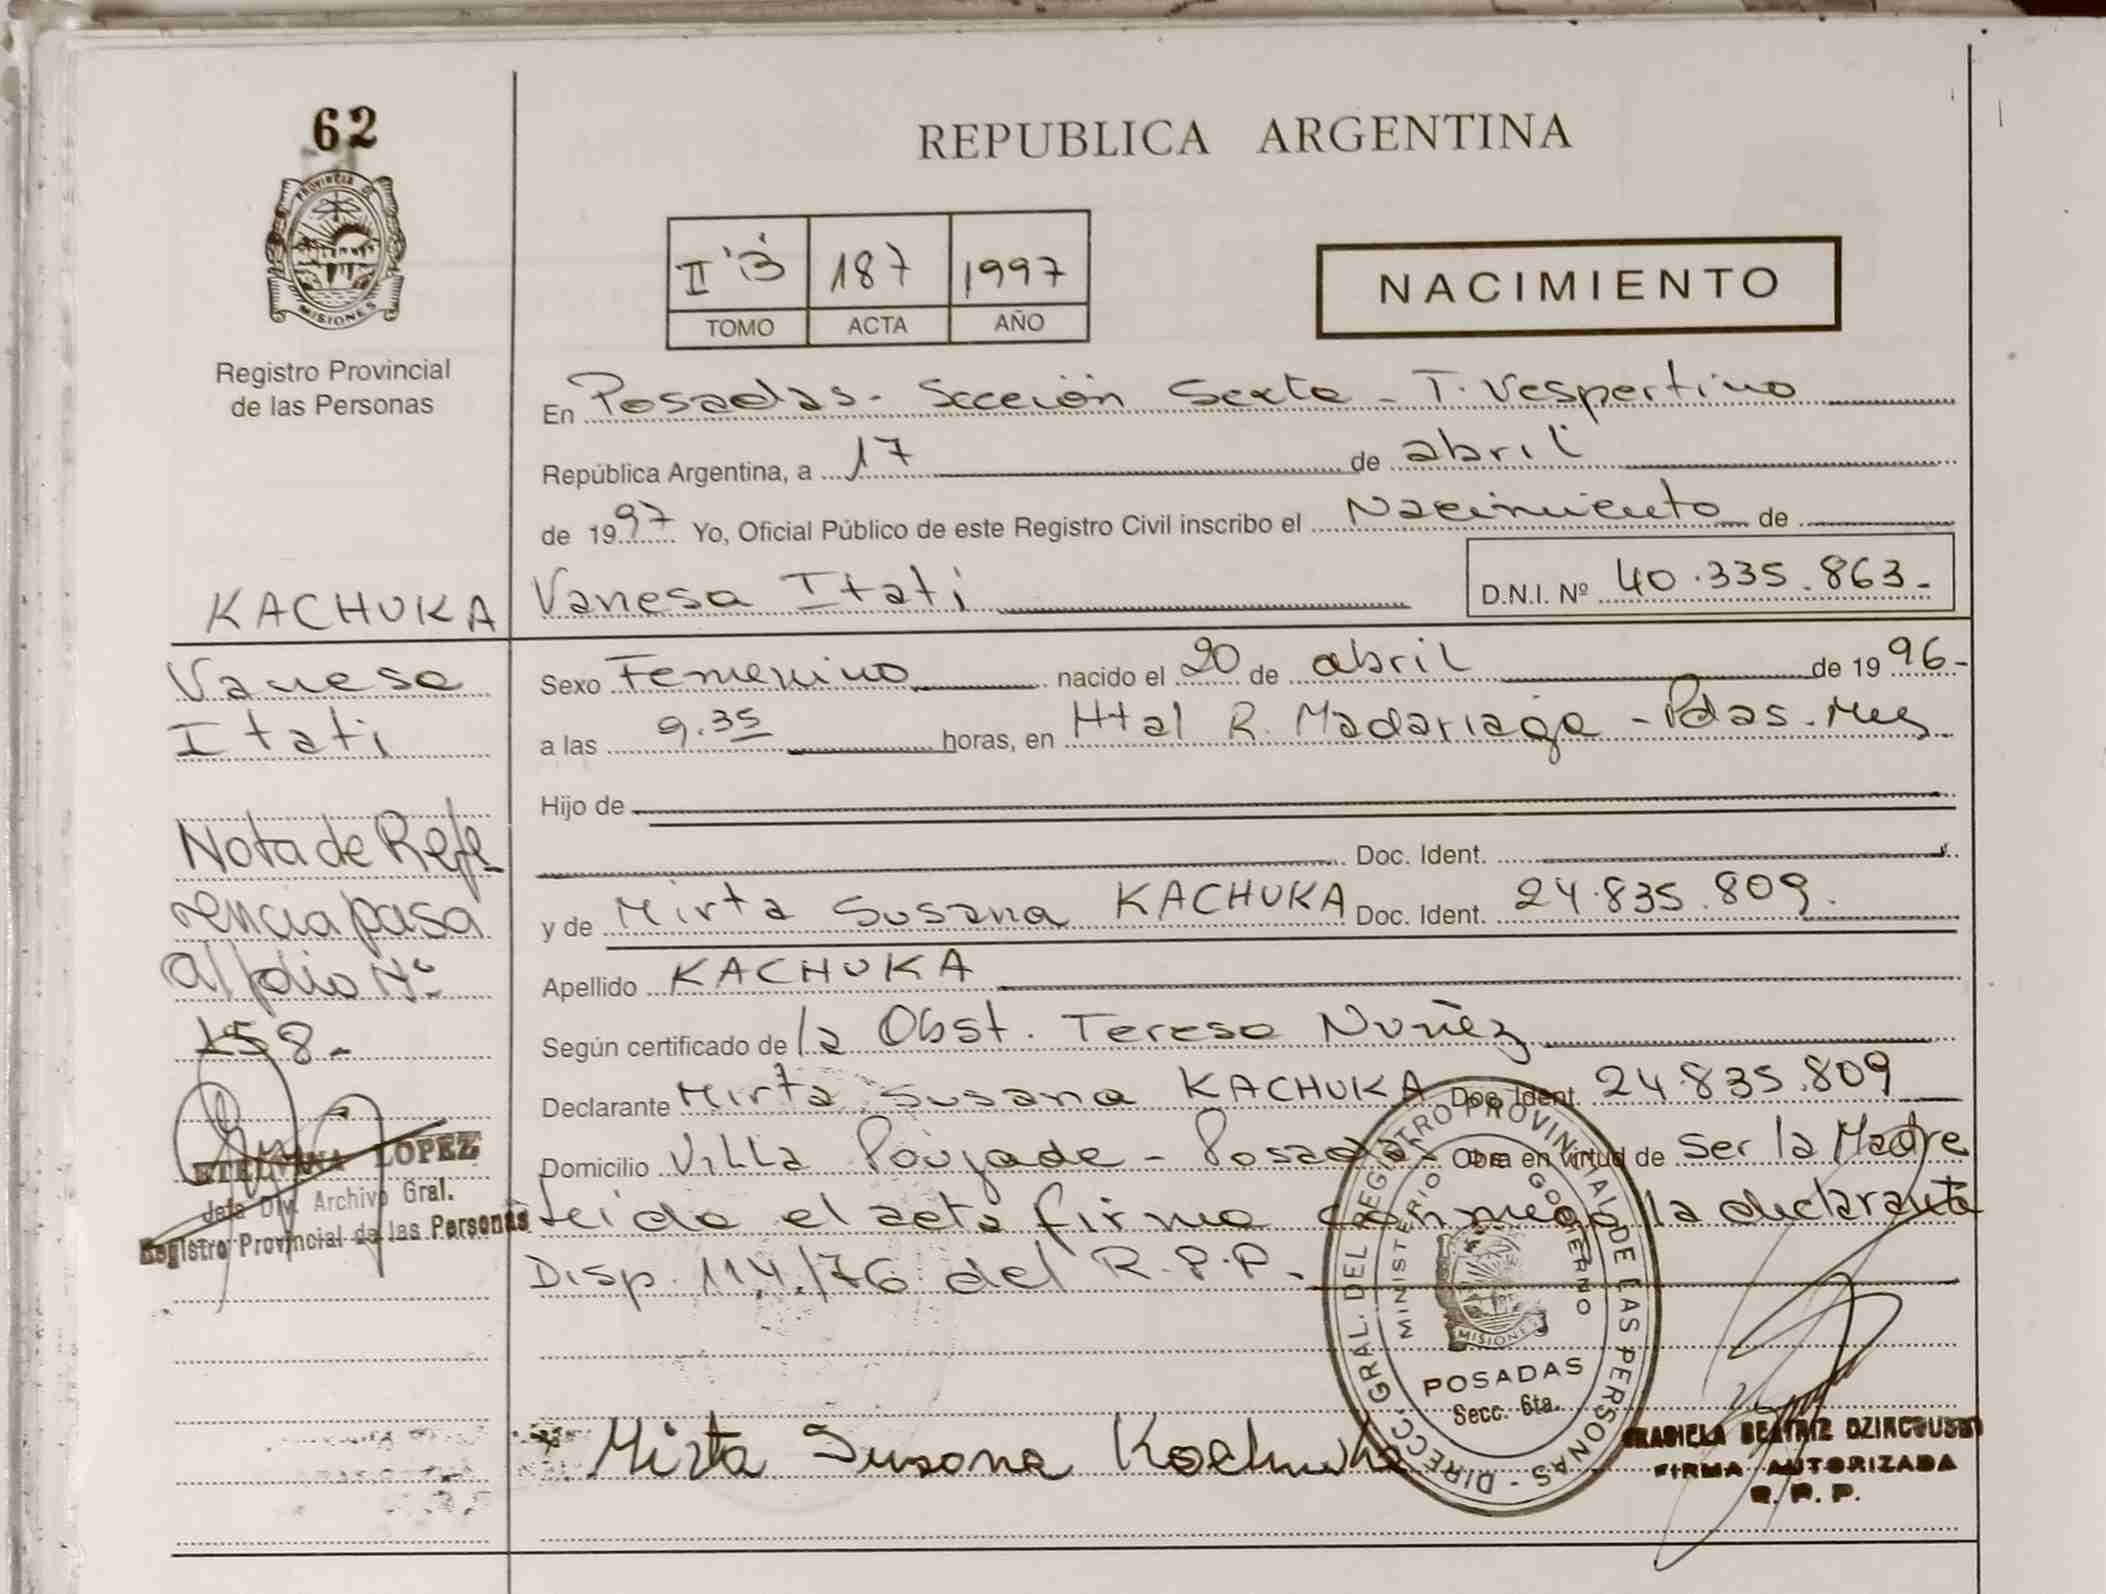 62
PROVINCIA DE
MISIONES
Registro Provincial
de las Personas
REPUBLICA ARGENTINA
II "B" 187 1997
TOMO ACTA AÑO
NACIMIENTO
En Posadas - Sección Sexta - T. Vespertino
República Argentina, a 17 de abril
de 1997 Yo, Oficial Público de este Registro Civil inscribo el Nacimiento de
KACHUKA Vanesa Itati D.N.I. Nº 40.335.863.-
Vanesa
Itati
Nota de Refe
rencia pasa
al folio Nº
158.-
LOPEZ
Jefa Div. Archivo Gral.
Registro Provincial de las Personas
Sexo Femenino nacido el 20 de abril de 1996-
a las 9.35 horas, en Htal R. Madariaga - Pdas. Mns
Hijo de
Doc. Ident.
y de Mirta Susana KACHUKA Doc. Ident. 24.835.809.
Apellido KACHUKA
Según certificado de la Obst. Teresa Nuñez
Declarante Mirta Susana KACHUKA Doc. Ident. 24.835.809
Domicilio Villa Poujade - Posadas Obra en virtud de ser la Madre
Leida el acta firma conmigo la declarante
Disp. 114/76 del R.P.P.-
DIRECC. GRAL. DEL REGISTRO PROVINCIAL DE LAS PERSONAS -
MINISTERIO DE GOBIERNO
MISIONES
POSADAS
Secc. 6ta.
Mirta Susana Kachuka
GRACIELA BEATRIZ
FIRMA AUTORIZADA
R. P. P.